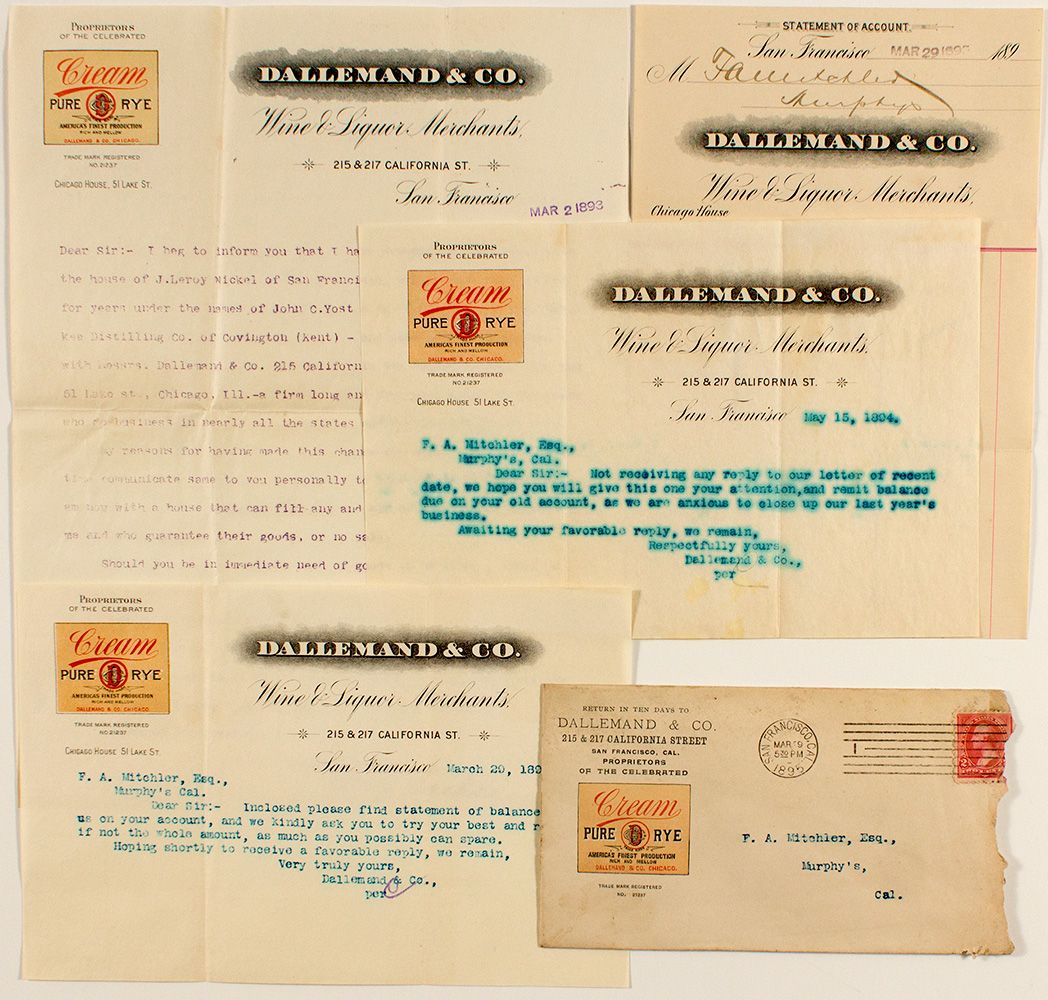 PROPRIETORS
OF THE CELEBRATED
Cream
PURE RYE
AMERICA'S FINEST PRODUCTION
RICH AND MELLOW
DALLEMAND & CO. CHICAGO.
TRADE MARK REGISTERED
NO. 21237
CHICAGO HOUSE, 51 LAKE ST.
DALLEMAND & CO.
Wine & Liquor Merchants,
215 & 217 CALIFORNIA ST.
San Francisco
MAR 2 1893
Dear Sir:- I beg to inform you that I ha
the house of J.Leroy Nickel of San Franci
for years under the names of John C.Yost
kee Distilling Co. of Covington (Kent) -
with Messrs. Dallemand & Co. 215 Californ
51 Lake st., Chicago, Ill.-a firm long an
who do business in nearly all the states
My reasons for having made this chan
time communicate same to you personally to
am now with a house that can fill any and
me and who guarantee their goods, or no sa
Should you be in immediate need of go
STATEMENT OF ACCOUNT.
San Francisco MAR 29 1895 189
M F A Mitchler
Murphys
DALLEMAND & CO.
Wine & Liquor Merchants,
Chicago House
PROPRIETORS
OF THE CELEBRATED
Cream
PURE RYE
AMERICA'S FINEST PRODUCTION
RICH AND MELLOW
DALLEMAND & CO. CHICAGO.
TRADE MARK REGISTERED
NO. 21237
CHICAGO HOUSE 51 LAKE ST.
DALLEMAND & CO.
Wine & Liquor Merchants,
215 & 217 CALIFORNIA ST.
San Francisco May 15, 1894.
F. A. Mitchler, Esq.,
Murphy's, Cal.
Dear Sir:- Not receiving any reply to our letter of recent
date, we hope you will give this one your attention,and remit balance
due on your old account, as we are anxious to close up our last year's
business.
Awaiting your favorable reply, we remain,
Respectfully yours,
Dallemand & Co.,
per
PROPRIETORS
OF THE CELEBRATED
Cream
PURE RYE
AMERICA'S FINEST PRODUCTION
RICH AND MELLOW
DALLEMAND & CO. CHICAGO.
TRADE MARK REGISTERED
NO. 21237
CHICAGO HOUSE 51 LAKE ST.
DALLEMAND & CO.
Wine & Liquor Merchants,
215 & 217 CALIFORNIA ST.
San Francisco March 29, 189
F. A. Mitchler, Esq.,
Murphy's Cal.
Dear Sir:- Inclosed please find statement of balance
us on your account, and we kindly ask you to try your best and r
if not the whole amount, as much as you possibly can spare.
Hoping shortly to receive a favorable reply, we remain,
Very truly yours,
Dallemand & Co.,
per
RETURN IN TEN DAYS TO
DALLEMAND & CO.
215 & 217 CALIFORNIA STREET
SAN FRANCISCO, CAL.
PROPRIETORS
OF THE CELEBRATED
Cream
PURE RYE
AMERICA'S FINEST PRODUCTION
RICH AND MELLOW
DALLEMAND & CO. CHICAGO.
TRADE MARK REGISTERED
NO. 21237
SAN FRANCISCO, CAL.
MAR 29
530 PM
1895
1
F. A. Mitchler, Esq.,
Murphy's,
Cal.